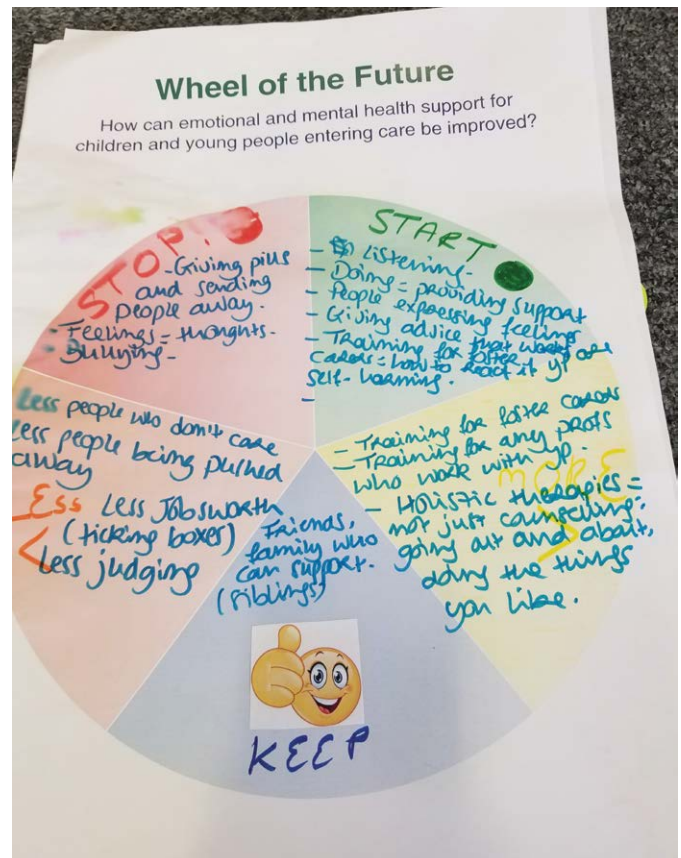 Wheel of the Future
How can emotional and mental health support for
children and young people entering care be improved?
STOP!
- Giving pills
and sending
people away.
- Feelings = thoughts.
- Bullying -
START
- Listening.
- Doing = providing support
- People expressing feelings
- Giving advice that works
- Training for foster
carers = how to react if yp are
self-harming.
-
- Training for foster carers
- Training for any profs
who work with yp.
MORE
- Holistic therapies =
not just counselling:
going out and about,
doing the things
you like.
Friends,
family who
can support.
(siblings)
KEEP
Less people who don't care
Less people being pushed
away
LESS
Less Jobsworth
(ticking boxes)
Less judging